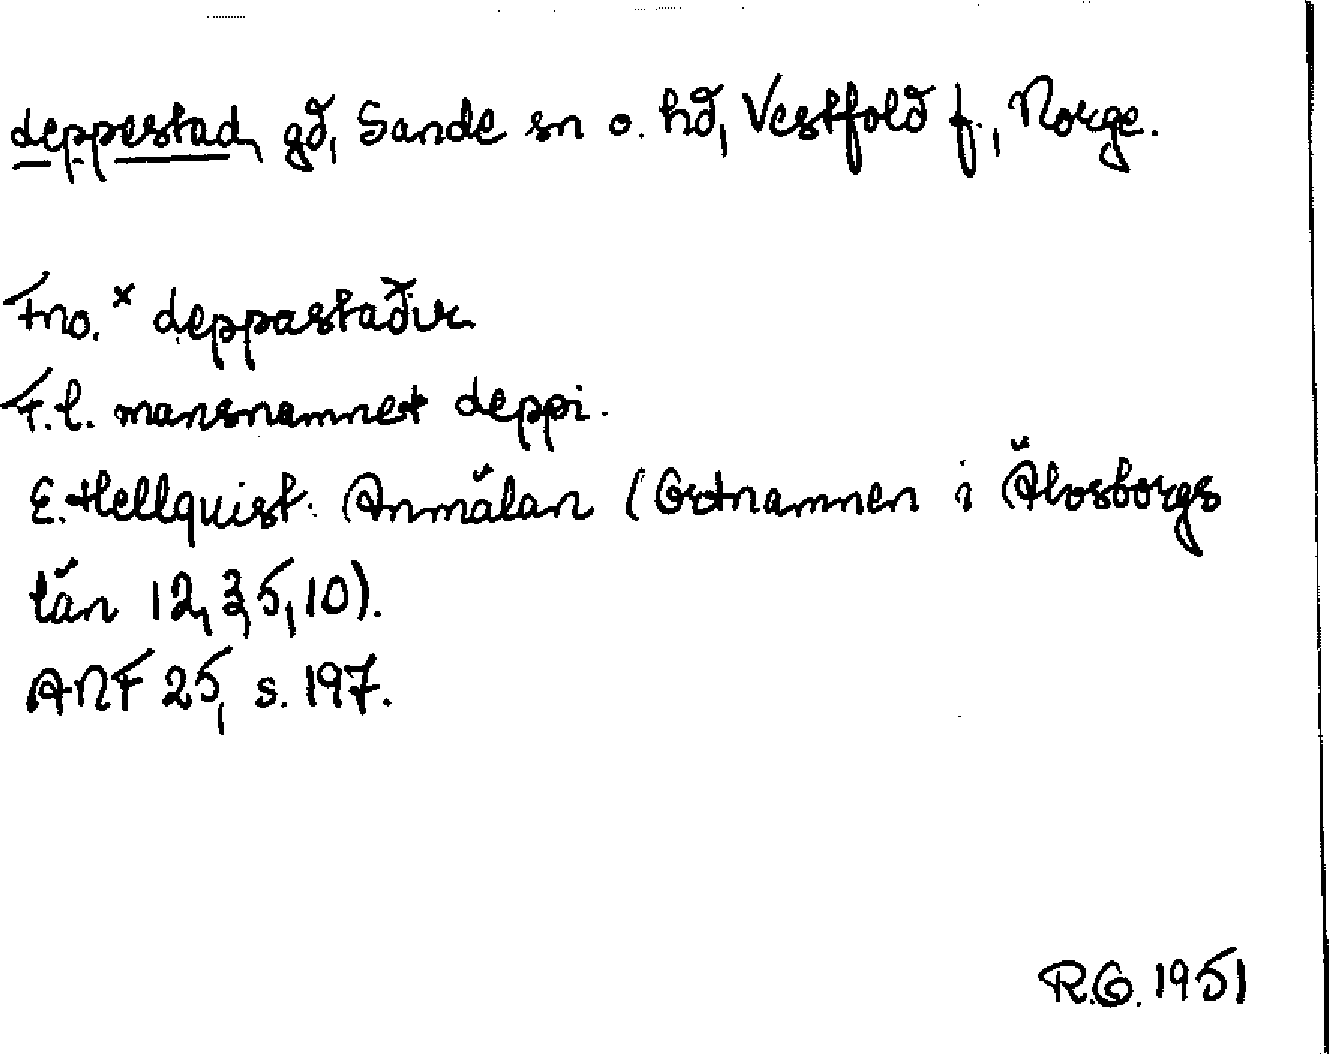 deppestad, gd, Sande sn o. hd, Vestfold f., Norge.
Fno. ˣ deppastaðir
F.l. mansnamnet deppi.
E. Hellquist: Anmälan (Ortnamnen i Älvsborgs
län 12, 3, 5, 10).
ANF 25, s. 197.
R.G. 1951